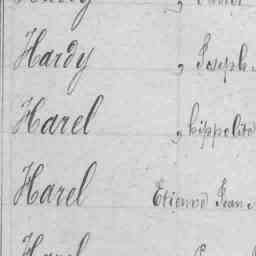 Hardy , Joseph
Harel , hippolite
Harel Etienne Jean